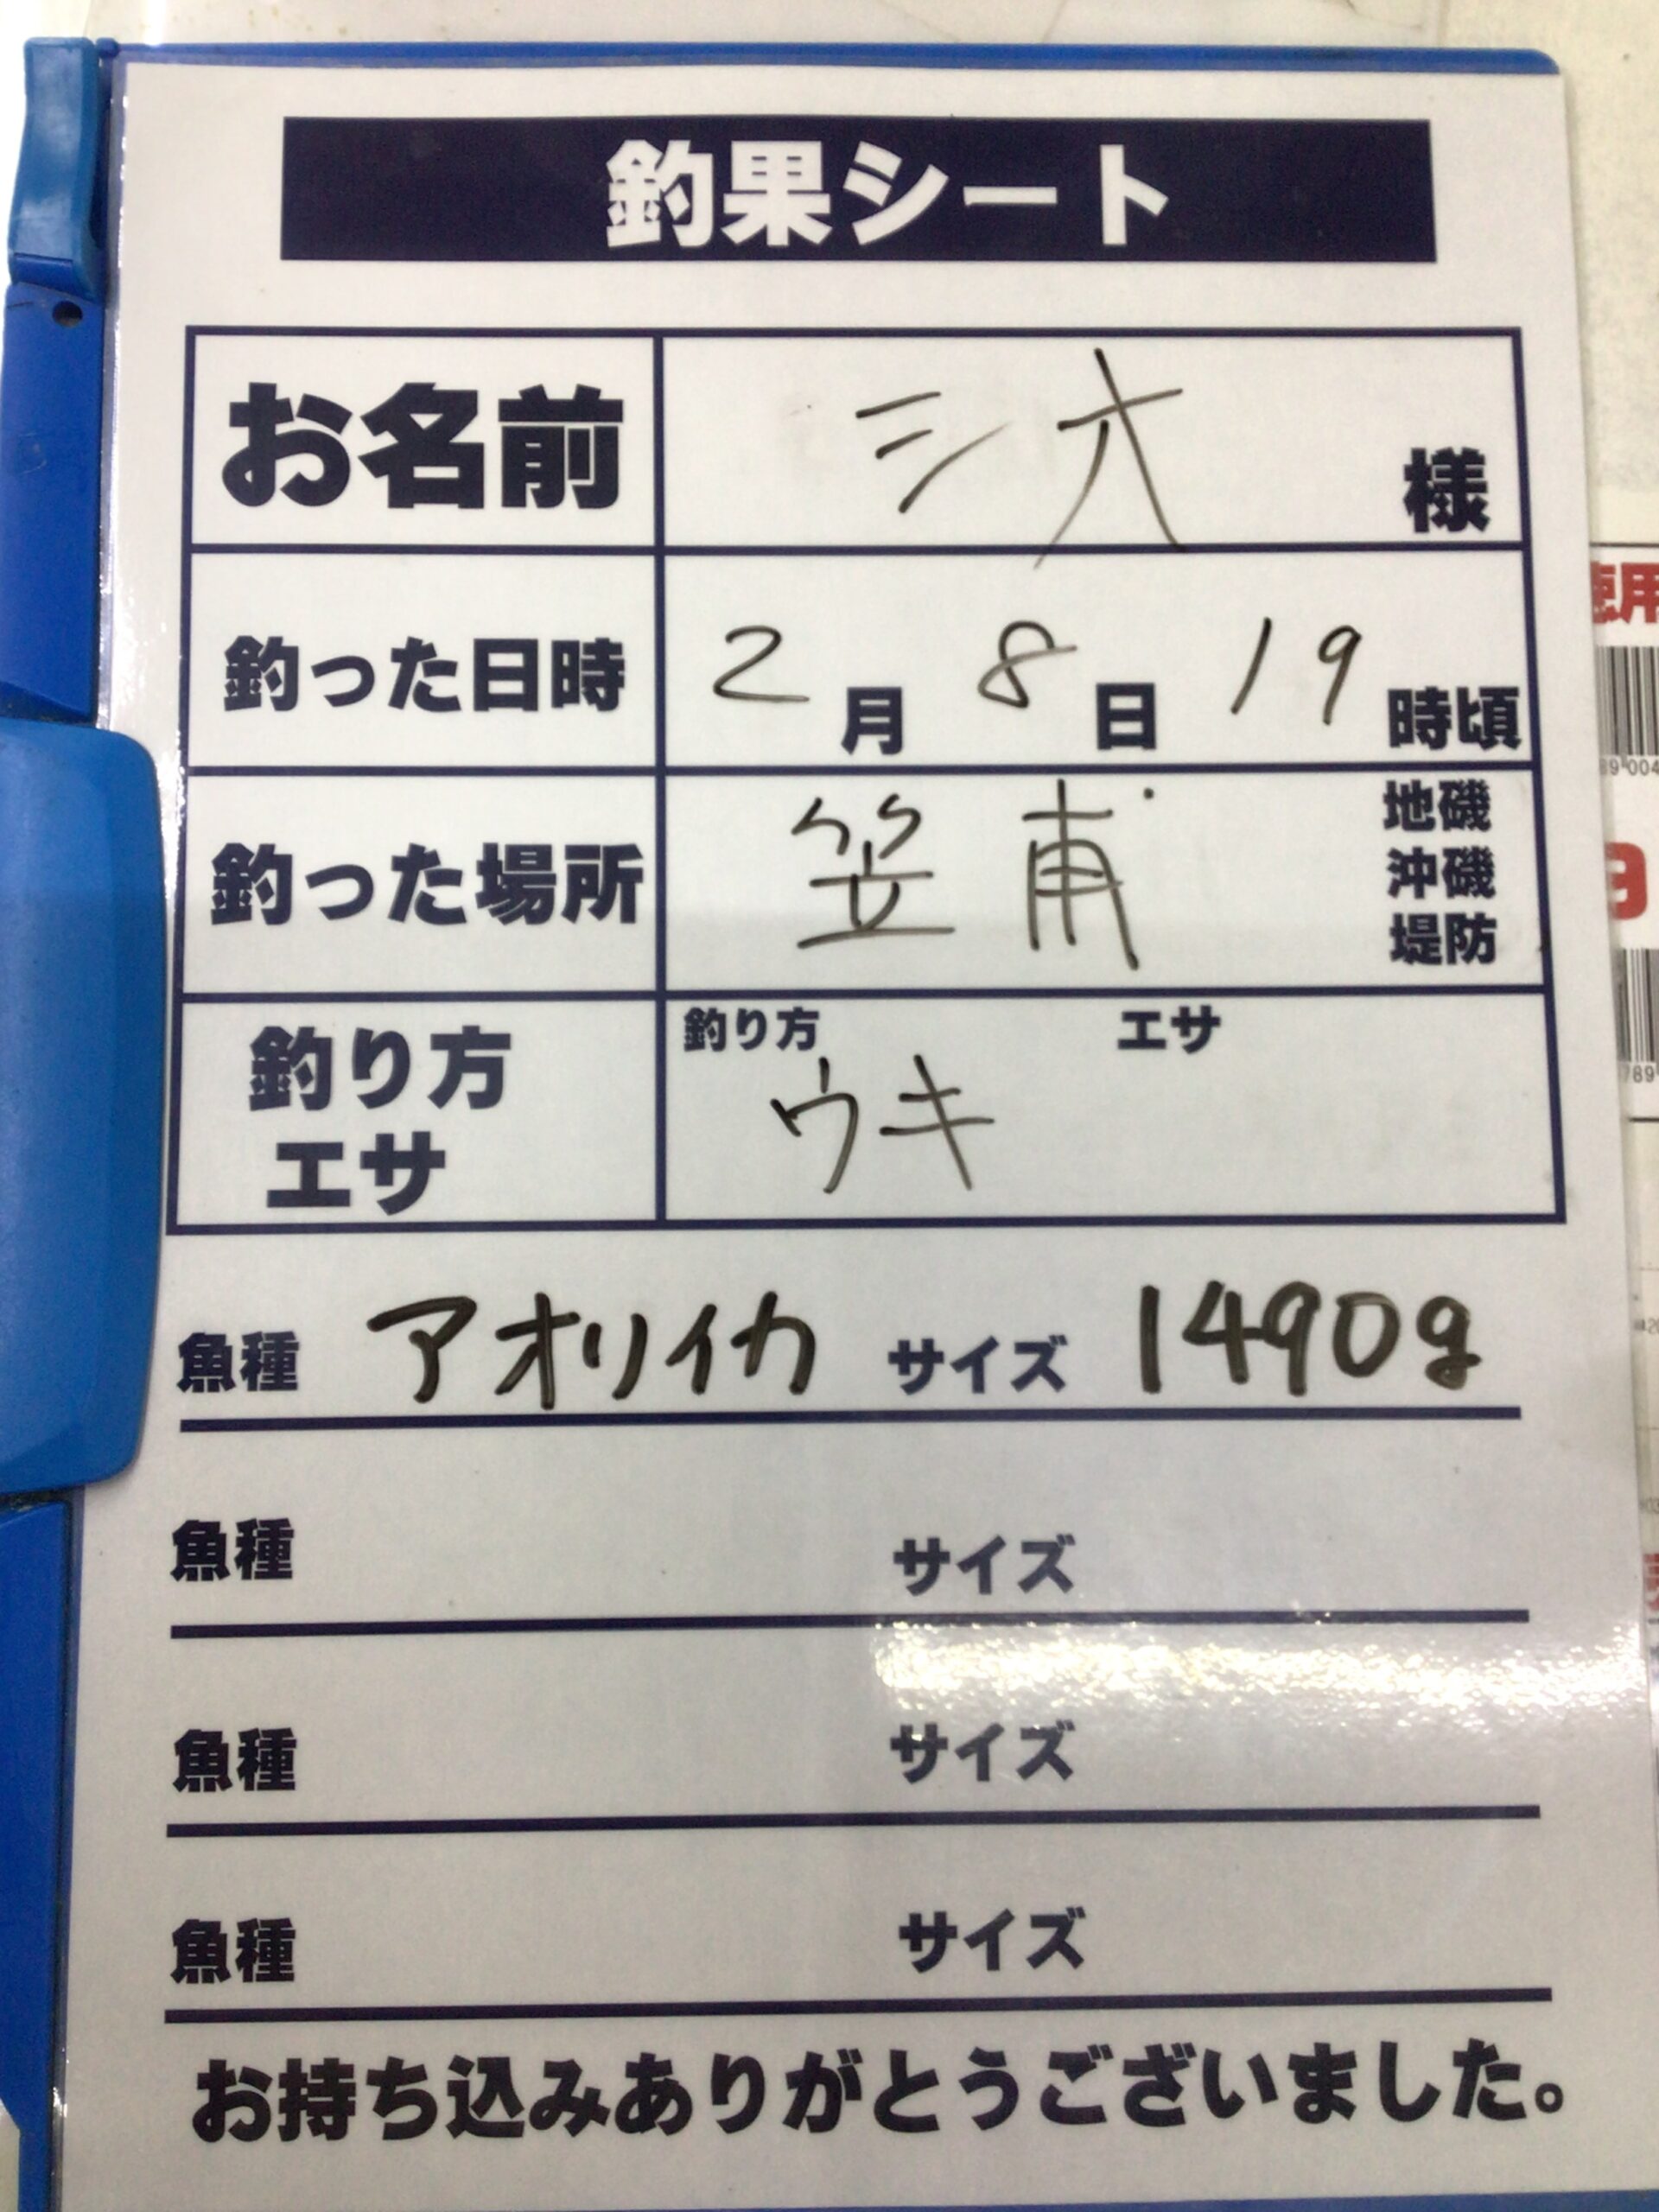 釣果シート
お名前 シオ 様
釣った日時 2月 8日 19時頃
釣った場所 笠甫 地磯
沖磯
堤防
釣り方 エサ
釣り方 エサ
ウキ
魚種 アオリイカ サイズ 1490g
魚種 サイズ
魚種 サイズ
魚種 サイズ
お持ち込みありがとうございました。